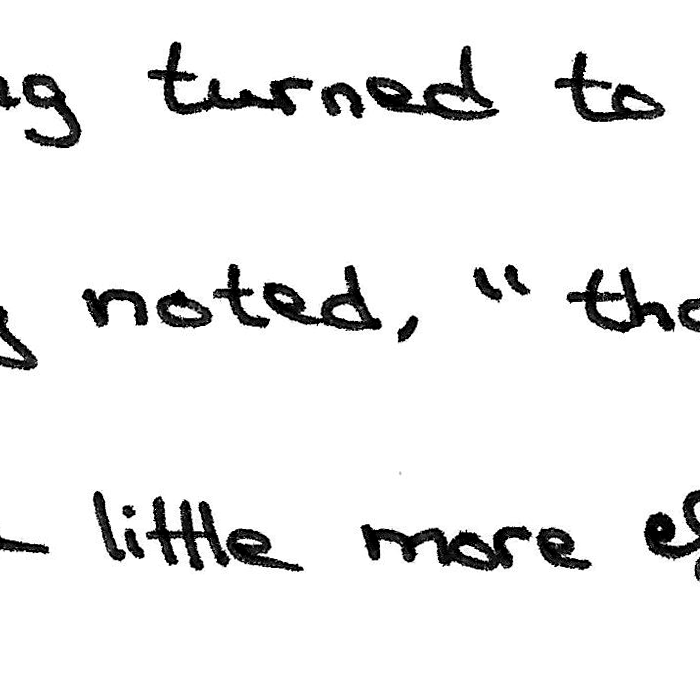 turned to
noted, "
little more